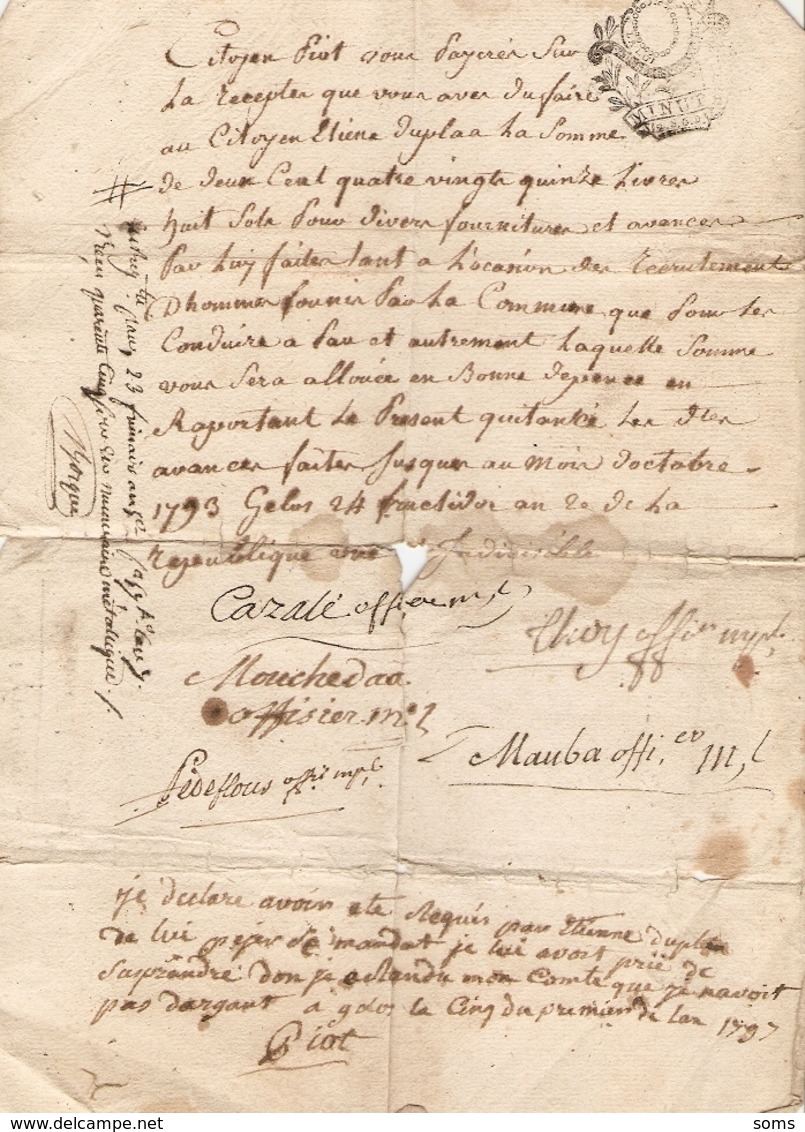 Citoyen Piot vous payerés Sur
La recepte que vous aves du faire
au Citoyen Etiene duplaa La Somme
de deux Cent quatre vingts quinze Livres
huit Sols pour divers fournitures et avances
par Luy faites tant a L'ocasion des recrutement
Dhommes founis par La Commune que pour les
Conduire a pau et autrement Laquelle Somme
vous Sera allouée en Bonne depence en
Raportant Le Present quitancé Les dtes
avances faites Jusques au mois doctobre
1793 Gelos 24 fructidor an 2e de La
republique une et Indivisible
MINUT
Cazalé officier ml
officr mpl
Mouchedaa
offisier ml
Mauba offi.er ml
Pedeflous offr mpl
je declare avoir ete Requis par Etienne duplaa
de lui peyer Se mandat je lui avoit prié de
Saprandre don je a Randu mon Comte que je navoit
pas dargant a gelos le Cinq du premier de lan 1797
Piot
pau, 23 frimaire an
Recu quarante Cinq sous en numeraire métallique